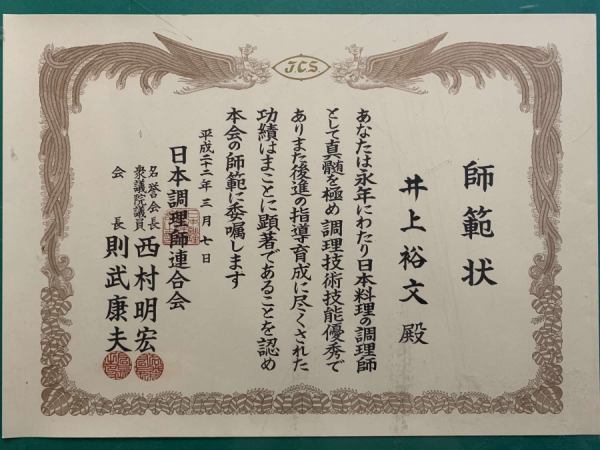 J.C.S.
師範状
井上裕文 殿
あなたは永年にわたり日本料理の調理師
として真髄を極め調理技術技能優秀で
ありまた後進の指導育成に尽くされた
功績はまことに顕著であることを認め
本会の師範に委嘱します
平成二十二年三月七日
日本調理師連合会
名誉会長
衆議院議員 西村明宏
会長 則武康夫